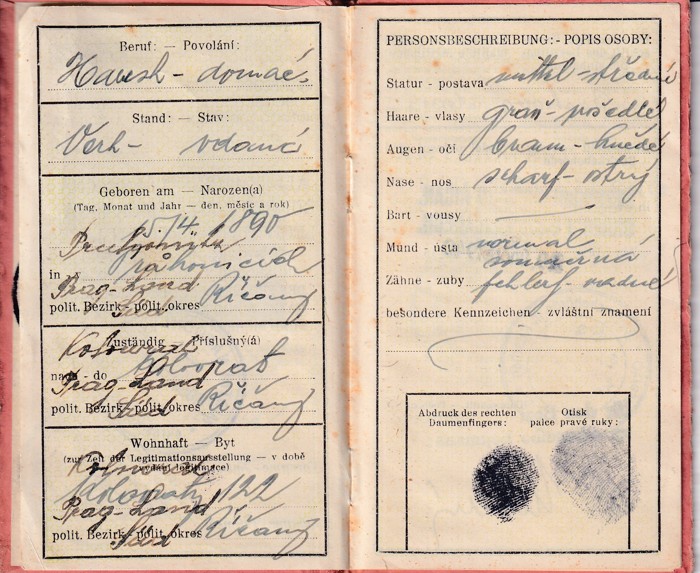 Beruf: — Povolání:
Haush - domác.
Stand: — Stav:
Verh - vdaná
Geboren am — Narozen(a)
(Tag, Monat und Jahr — den, měsíc a rok)
15/4. 1890
in
Prag-Land
Süd Říčany
polit. Bezirk - polit. okres
Zuständig — Příslušný(á)
Kolowrat
nach - do Kolovrat
Prag-Land
Süd Říčany
polit. Bezirk - polit. okres
Wohnhaft — Byt
(zur Zeit der Legitimationsausstellung — v době
vydání legitimace)
122
Prag-Land
Süd Říčany
polit. Bezirk - polit. okres
PERSONSBESCHREIBUNG: - POPIS OSOBY:
Statur - postava mittel - střední
Haare - vlasy grau - prošedlé
Augen - oči braun - hnědé
Nase - nos scharf - ostrý
Bart - vousy —
Mund - ústa normal
normální
Zähne - zuby fehlerh - vadné
besondere Kennzeichen - zvláštní znamení
Abdruck des rechten Daumenfingers:
Otisk palce pravé ruky: